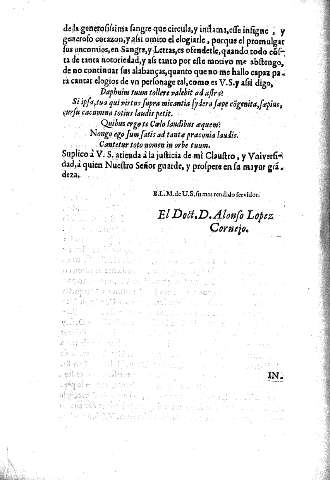 de la generosissima sangre que circula, y inflama, esse insigne, y
generoso corazon, y assi omito el elogiarle, porque el promulgar
sus encomios, en Sangre, y Letras, es ofenderle, quando todo cõs-
ta de tanta notoriedad, y assi tanto por este motivo me abstengo,
de no continuar sus alabanças, quanto que no me hallo capaz pa-
ra cantar elogios de vn personage tal, como es V.S. y assi digo,
Daphnim tuum tollere valebit ad astra?
Si ipsa, tua qui virtus supra micantia sydera sæpe cõgenita, sæpius,
cacumina totius laudis petit.
Quibus ergo te Cælo laudibus æquem?
Nonego sum satis ad tanta præconia laudis.
Cantetur toto nomen in orbe tuum.
Suplico à V. S. atienda à la justicia de mi Claustro, y Vniversi-
dad, à quien Nuestro Señor guarde, y prospere en su mayor grã-
deza.
B.L.M. de U.S. su mas rendido servidor.
El Doct. D. Alonso Lopez
Cornejo.
IN-